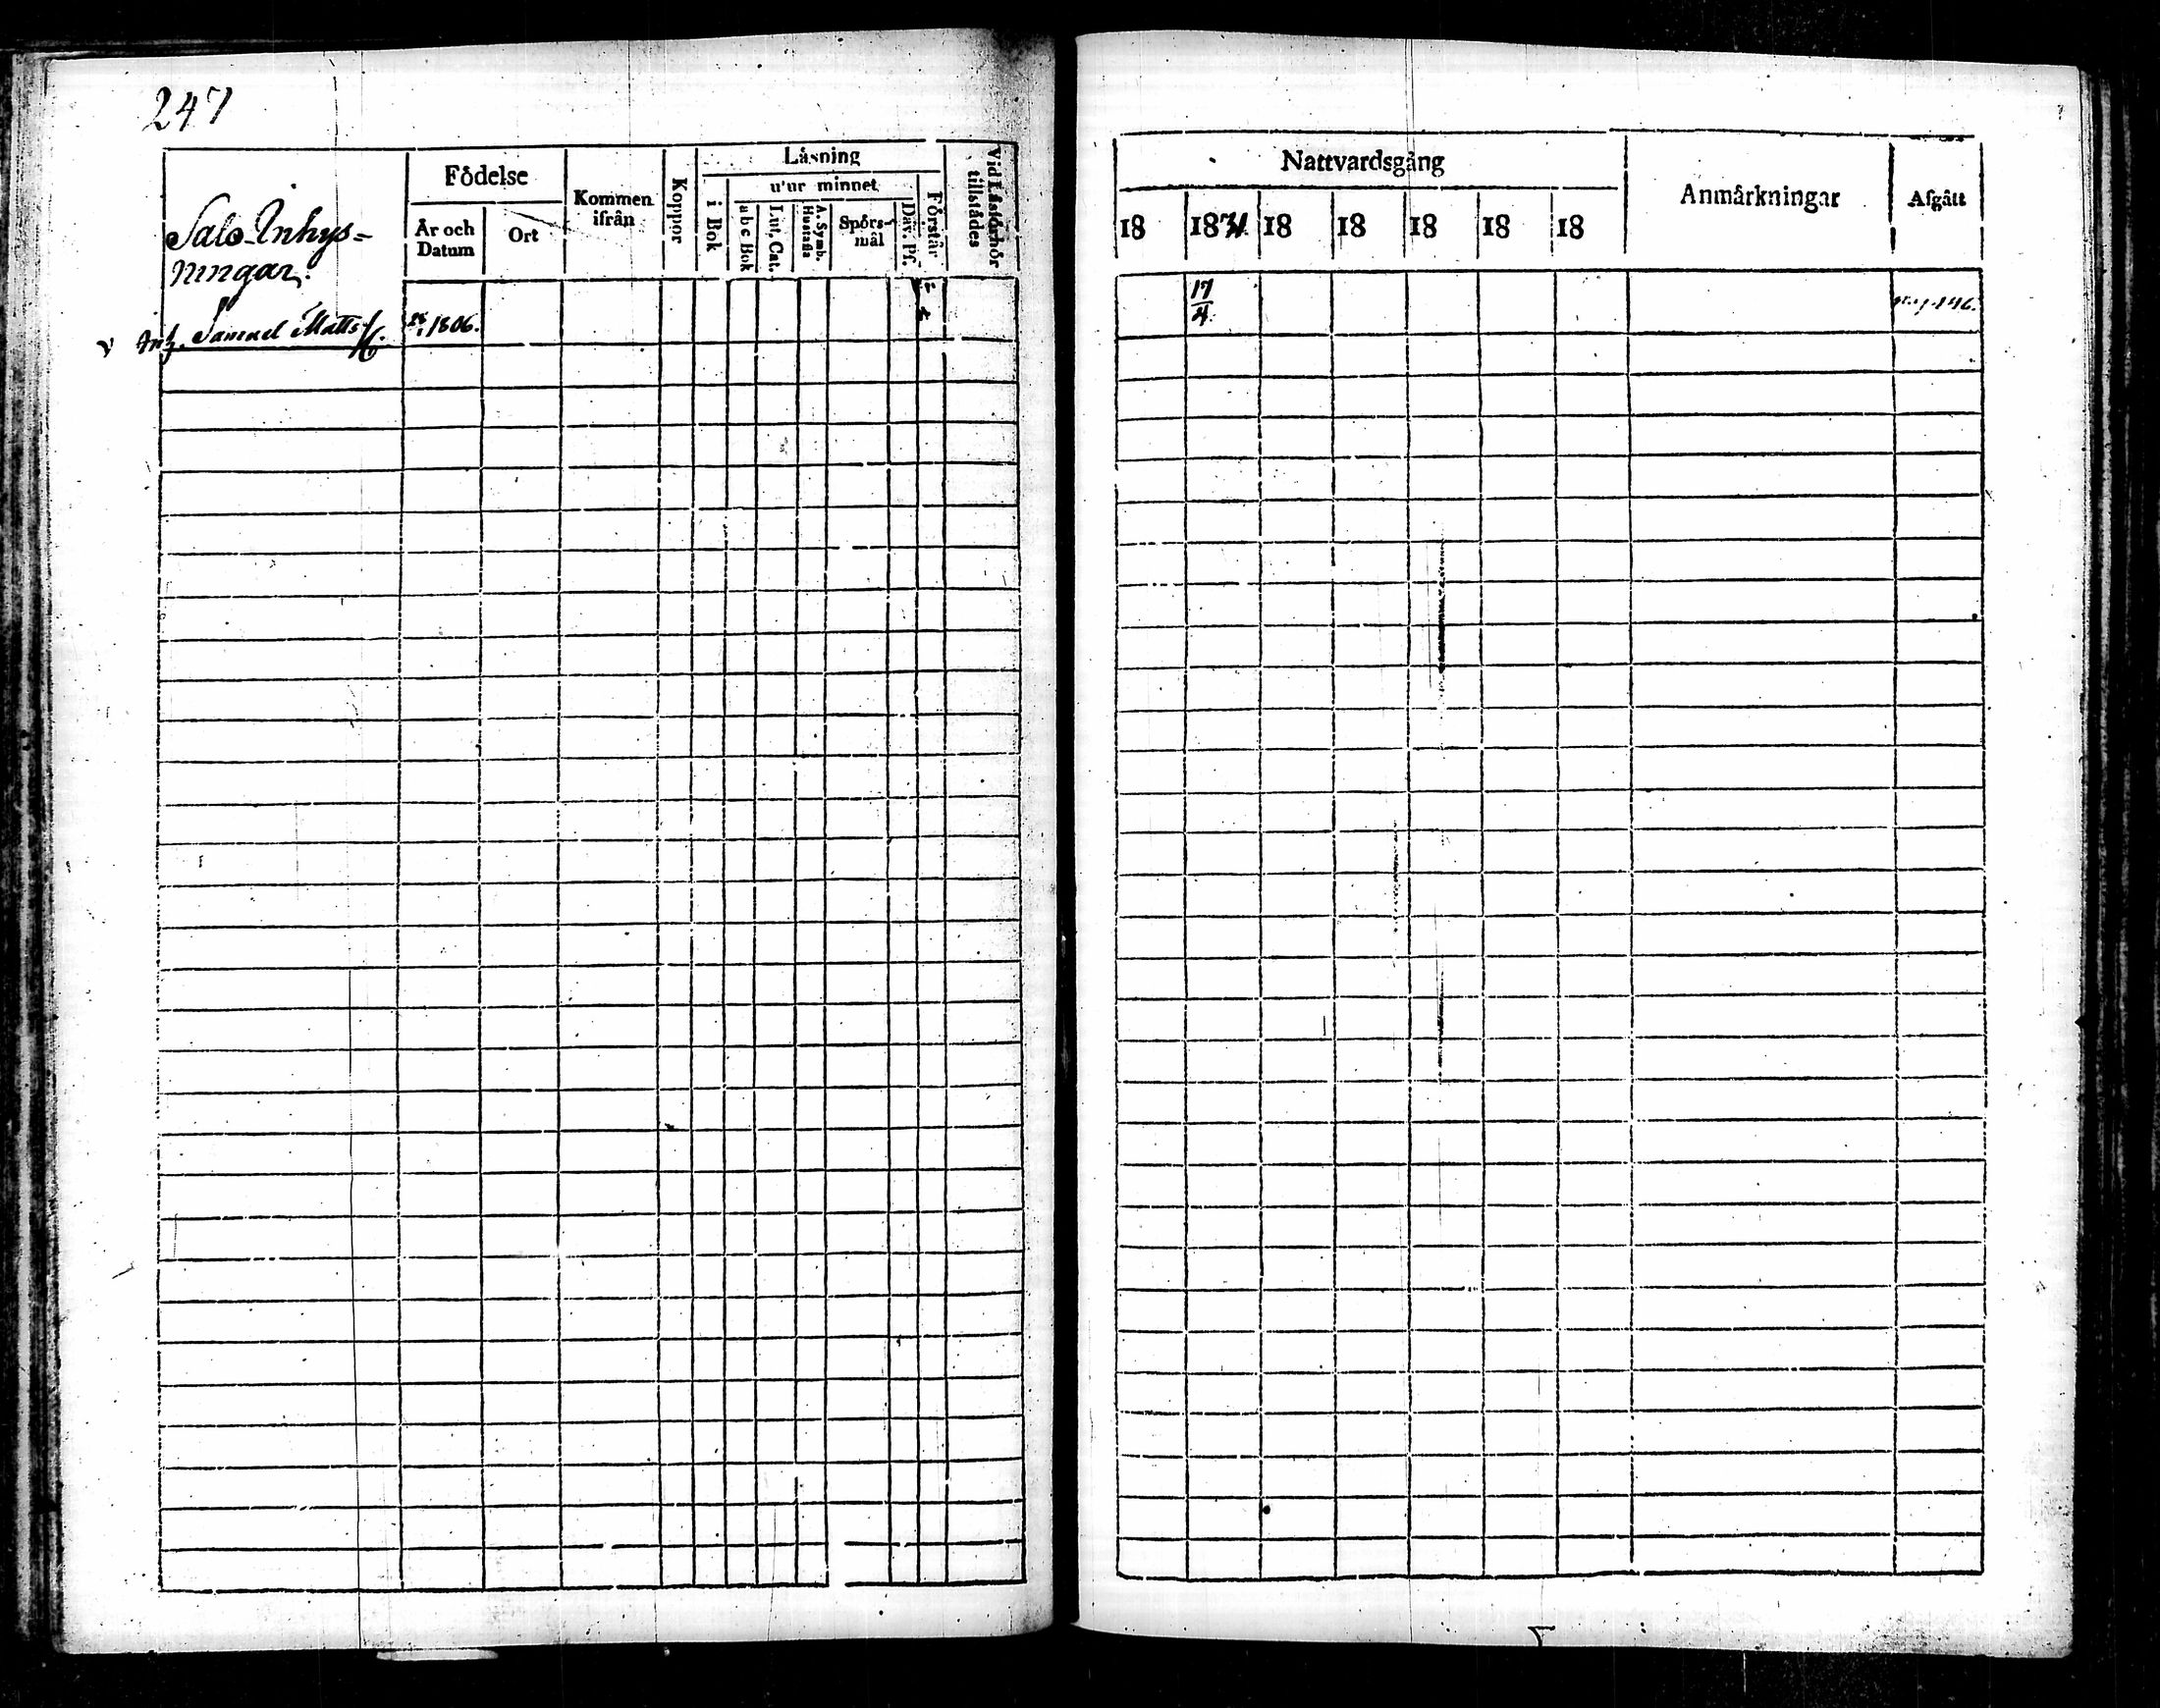 247
Födelse
Kommen ifrån
Koppor
Läsning
Vid Läsförhör tillstädes
Nattvardsgång
Anmärkningar
Afgått
År och Datum
Ort
i Bok
u'ur minnet
Förstår
abc Bok
Lut. Cat.
A. Symb. Hustafla
Spörs-mål
Dav. Ps.
18 1831 18 18 18 18 18
Salo-Inhys=
ningar.
v Inh. Samuel Matts 1806. 17/4 146.